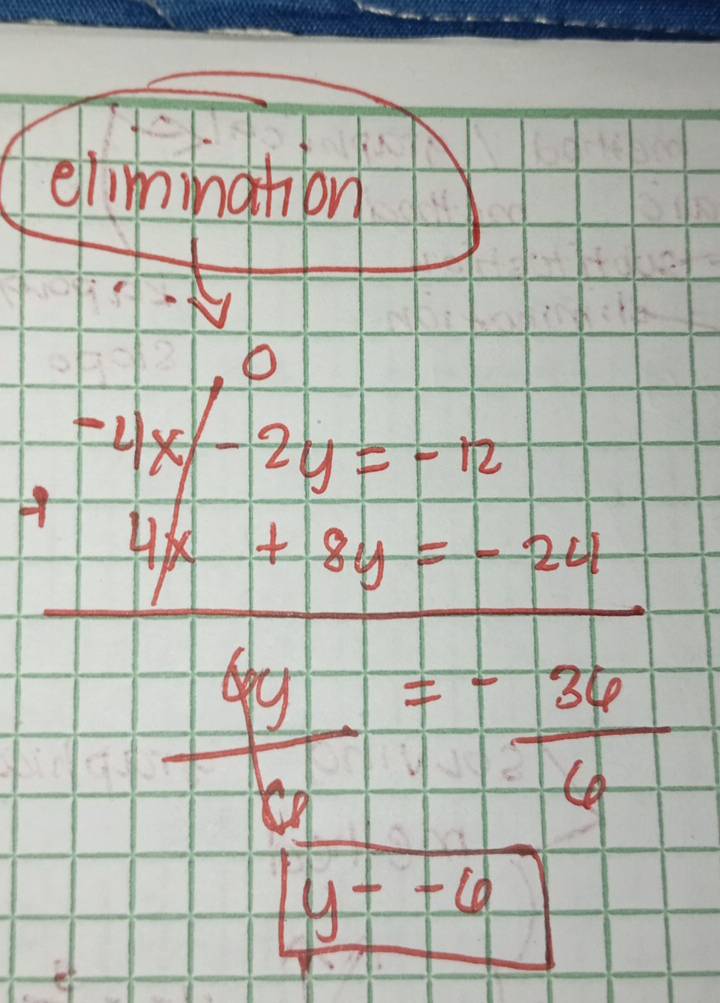 elimination
0
-4x - 2y = - 12
+ 4x + 8y = - 24
6y = - 36
6 6
y = -6